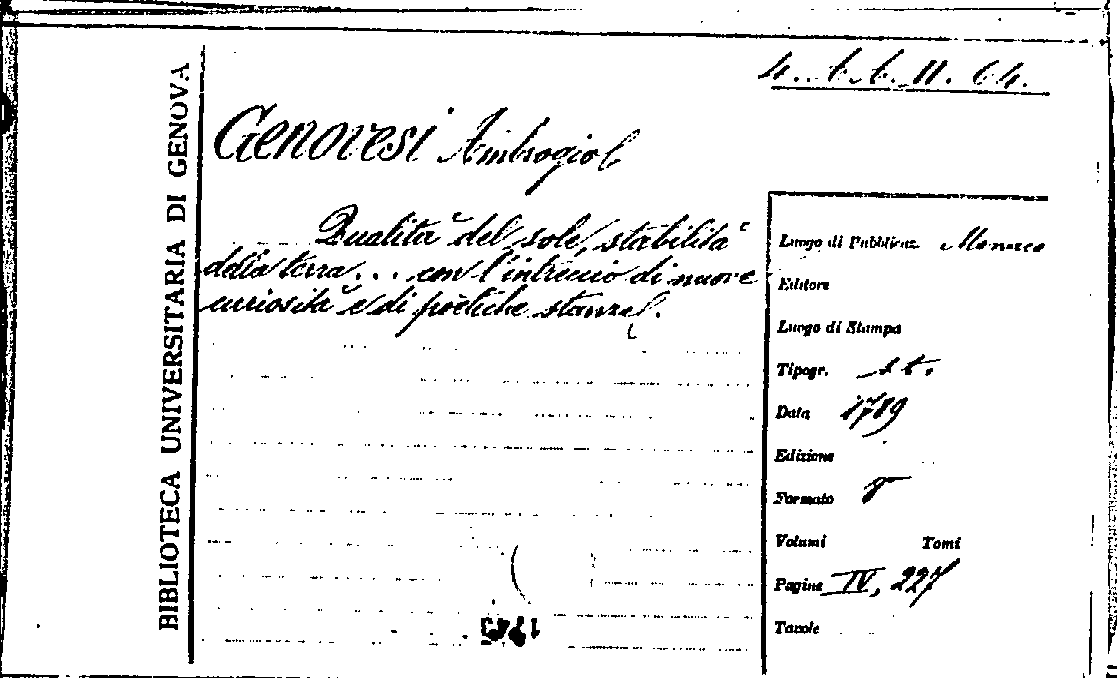 BIBLIOTECA UNIVERSITARIA DI GENOVA
4. b. b. II. 64.
Genovesi Ambrogio
Qualità del sole, stabilità
della terra... con l'intreccio di nuove
curiosità e di poetiche stanze.
Luogo di Pubblicaz. Monaco
Editore
Luogo di Stampa
Tipogr. s. t.
Data 1789
Edizione
Formato 8°
Volumi Tomi
Pagine IV, 227
Tavole